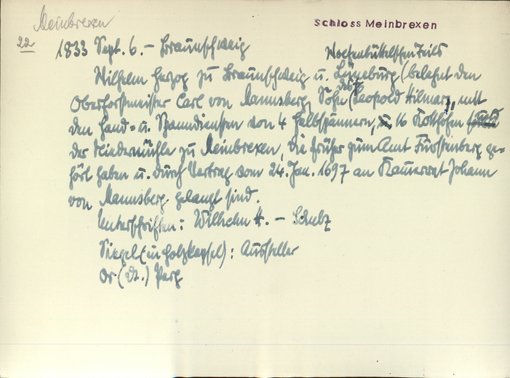 Meinbrexen
Schloss Meinbrexen
22
1833 Sept. 6. - Braunschweig
Wolfenbüttelschen Teils
Wilhelm Herzog zu Braunschweig u. Lüneburg (belehnt den
Oberforstmeister Carl von Mansberg, Sohn des Leopold Hilmar, mit
den Hand- u. Spanndiensten von 4 Halbspännern, 16 Kothöfen
der Niedermühle zu Meinbrexen, die früher zum Amt Fürstenberg ge-
hört haben u. durch Vertrag vom 24. Jan. 1697 an Kammerrat Johann
von Mansberg gelangt sind.
Unterschriften: Wilhelm H. - Schulz
Siegel (in Holzkapsel): Aussteller
Or. (dt.) Perg